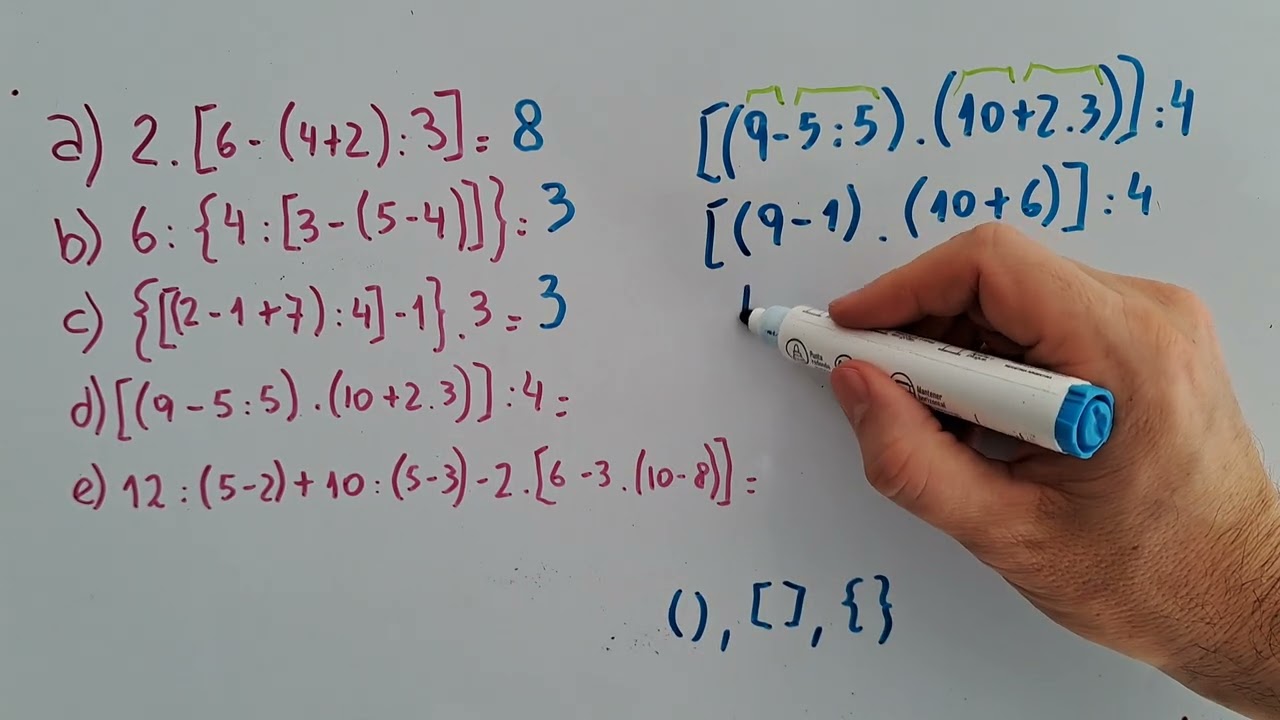 a) 2.[6-(4+2):3]= 8
b) 6:{4:[3-(5-4)]}= 3
c) {[(2-1+7):4]-1}.3= 3
d) [(9-5:5).(10+2.3)]:4=
e) 12:(5-2)+10:(5-3)-2.[6-3.(10-8)]=
[(9-5:5).(10+2.3)]:4
[(9-1).(10+6)]:4
(), [], {}
Mantener
horizontal